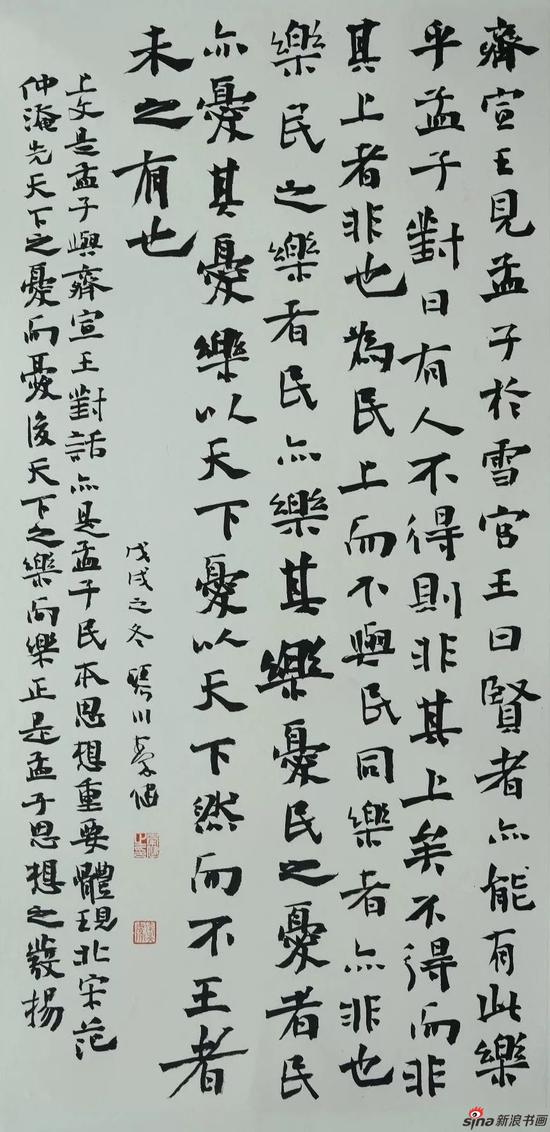 齊宣王見孟子於雪宮王曰賢者亦能有此樂
乎孟子對曰有人不得則非其上矣不得而非
其上者非也為民上而不與民同樂者亦非也
樂民之樂者民亦樂其樂憂民之憂者民
亦憂其憂樂以天下憂以天下然而不王者
未之有也
戊戌之冬
上文是孟子與齊宣王對話亦是孟子民本思想重要體現北宋范
仲淹先天下之憂而憂後天下之樂而樂正是孟子思想之發揚
sina新浪书画